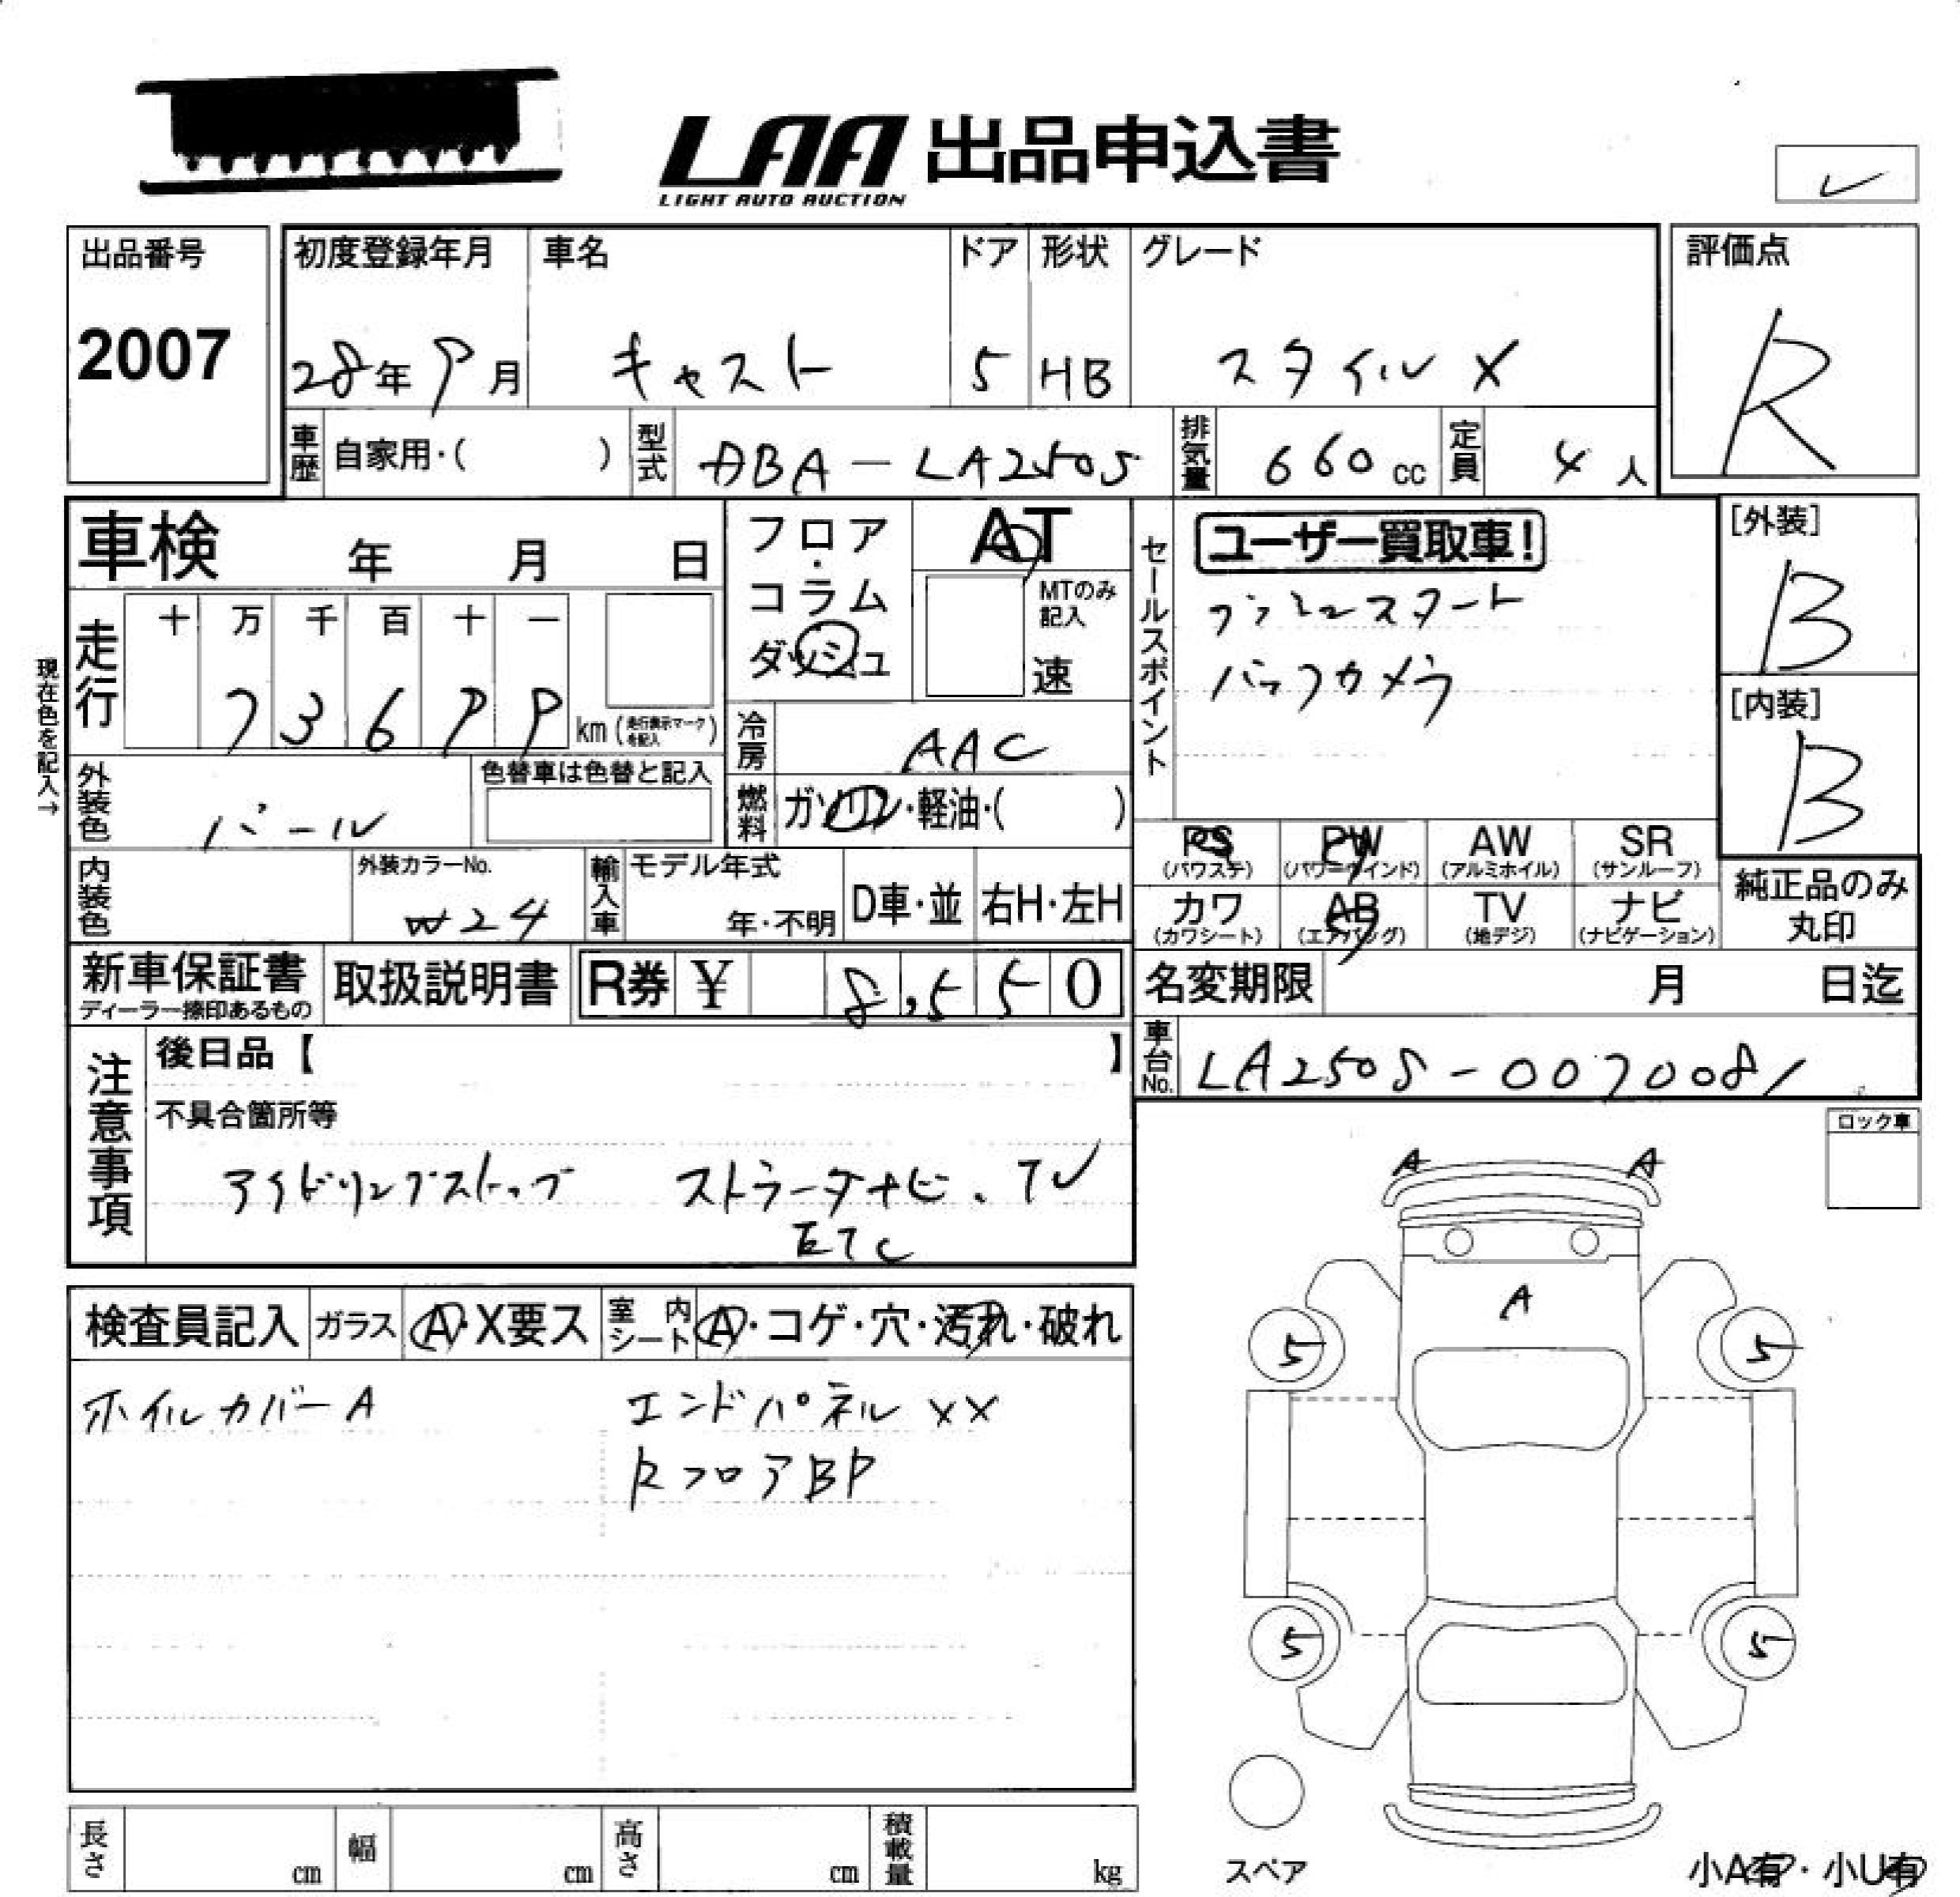 LAA 出品申込書
LIGHT AUTO AUCTION
出品番号
2007
初度登録年月
28年9月
車名
キャスト
ドア
5
形状
HB
グレード
スタイルX
評価点
R
車歴
自家用・( )
型式
DBA-LA250S
排気量
660cc
定員
4人
車検 年 月 日
フロア・コラム
ダッシュ
AT
MTのみ記入
速
セールスポイント
ユーザー買取車!
プッシュスタート
バックカメラ
[外装]
B
[内装]
B
現在色を記入→
走行
十 万 千 百 十 一
7 3 6 9 9 km (走行表示マークを記入)
冷房
AAC
外装色
パール
色替車は色替と記入
燃料
ガソリン・軽油・( )
PS
(パワステ)
PW
(パワーウインド)
AW
(アルミホイル)
SR
(サンルーフ)
カワ
(カワシート)
AB
(エアバッグ)
TV
(地デジ)
ナビ
(ナビゲーション)
純正品のみ
丸印
内装色
外装カラーNo.
W24
輸入車
モデル年式
年・不明
D車・並
右H・左H
新車保証書
ディーラー捺印あるもの
取扱説明書
R券 ¥ 8,550
名変期限 月 日迄
車台No.
LA250S-0070081
注意事項
後日品【 】
不具合箇所等
アイドリングストップ ストラーダナビ、TV
ETC
ロック車
検査員記入
ガラス
A・X要ス
室内シート
A・コゲ・穴・汚れ・破れ
ホイルカバーA
エンドパネルXX
RフロアBP
A A
A
5 5
5 5
スペア
長さ cm
幅 cm
高さ cm
積載量 kg
小A有・小U有